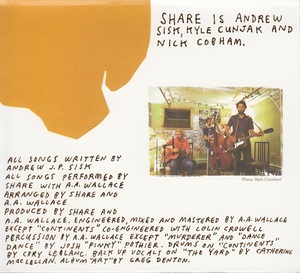 SHARE IS ANDREW
SISK, KYLE CUNJAK AND
NICK COBHAM.
Photo: Beth Crawford
ALL SONGS WRITTEN BY
ANDREW J.P. SISK
ALL SONGS PERFORMED BY
SHARE WITH A.A. WALLACE
ARRANGED BY SHARE AND
A.A. WALLACE
PRODUCED BY SHARE AND
A.A. WALLACE. ENGINEERED, MIXED AND MASTERED BY A.A. WALLACE
EXCEPT "CONTINENTS" CO-ENGINEERED WITH COLIN CROWELL
PERCUSSION BY A.A. WALLACE EXCEPT "MURDERER" AND "DANCE
DANCE" BY JOSH "PINKY" POTHIER. DRUMS ON "CONTINENTS"
BY CORY LEBLANC. BACK UP VOCALS ON "THE YARD" BY CATHERINE
MACLELLAN. ALBUM "ART" BY GREG DENTON.